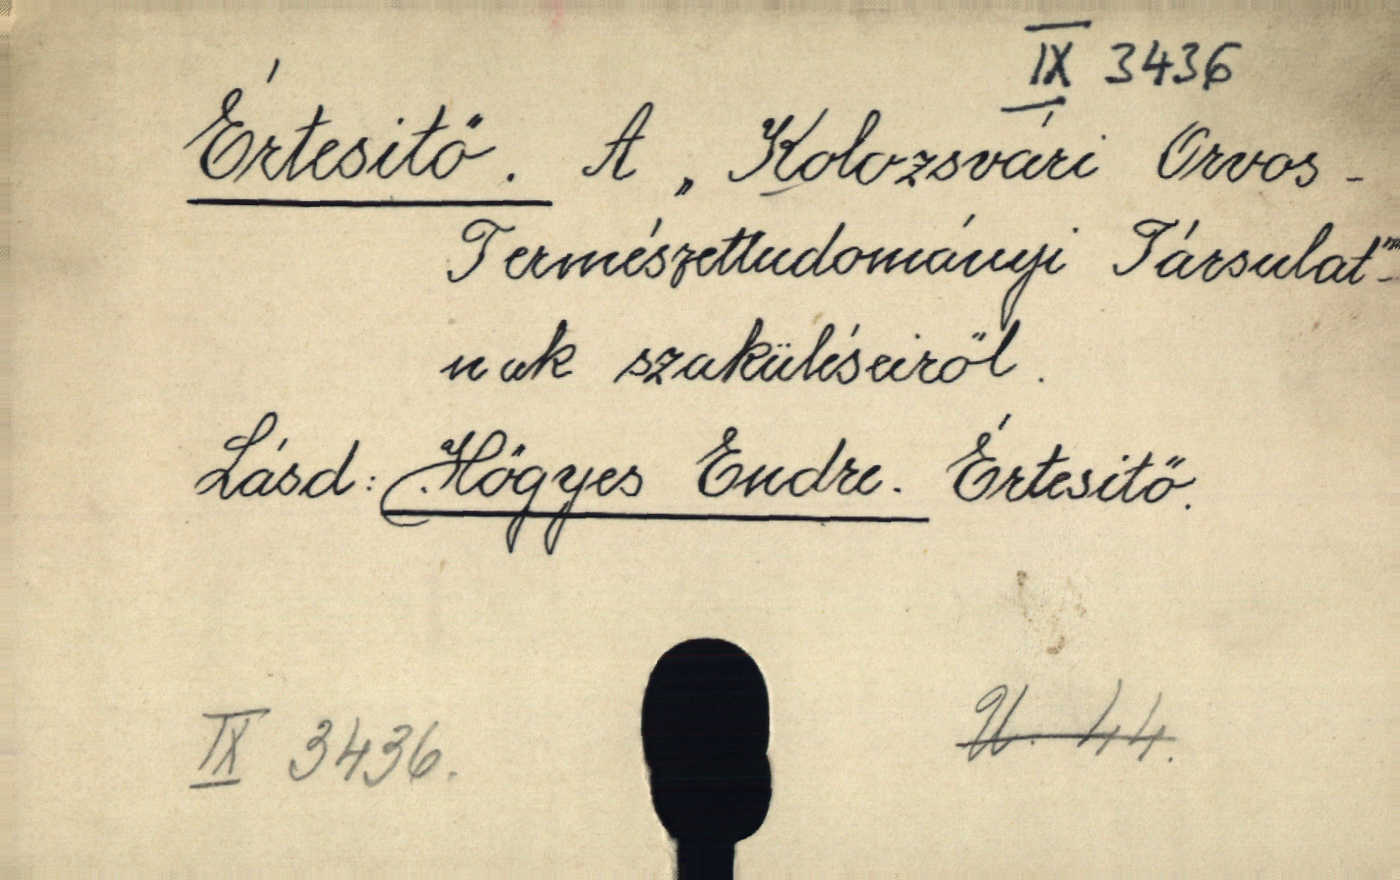 IX 3436
Értesitő. A „Kolozsvári Orvos-
Természettudományi Társulat"-
nak szaküléseiről.
Lásd: Hőgyes Endre. Értesitő.
IX 3436.
U. 44.